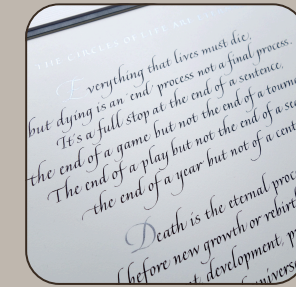 THE CIRCLE OF LIFE
Everything that lives must die,
but dying is an 'end' process not a final process.
It's a full stop at the end of a sentence,
the end of a game but not the end of a
The end of a play but not the end of a
the end of a year but not of a
Death is the eternal
before new growth or
development,